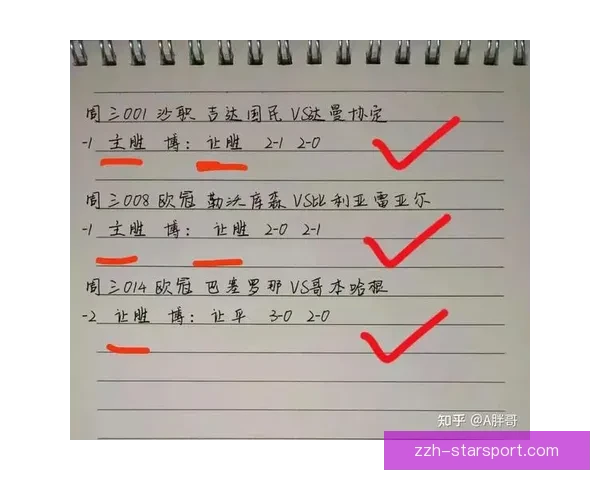 周三001 沙职 吉达国民 VS达曼协定
-1 主胜 博: 让胜 2-1 2-0
周三008 欧冠 勒沃库森 VS比利亚雷亚尔
-1 主胜 博: 让胜 2-0 2-1
周三014 欧冠 巴塞罗那 VS哥本哈根
-2 让胜 博: 让平 3-0 2-0
知乎 @A胖哥
zzh-starsport.com